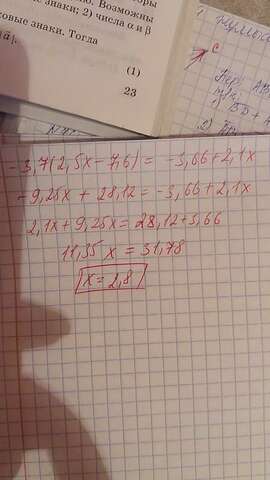 Возможны
ые знаки; 2) числа α и β
ковые знаки. Тогда
(1)
23
C
-3,7(2,5x-7,6) = -3,66+2,1x
-9,25x + 28,12 = -3,66+2,1x
2,1x+9,25x = 28,12+3,66
11,35x = 31,78
x=2,8